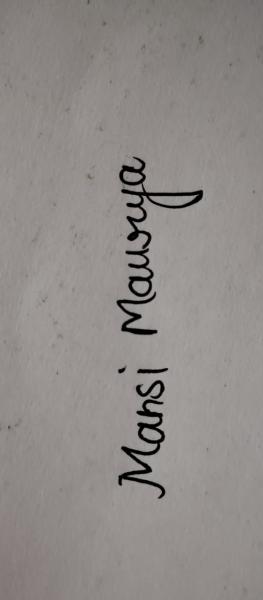 Mansi Maurya